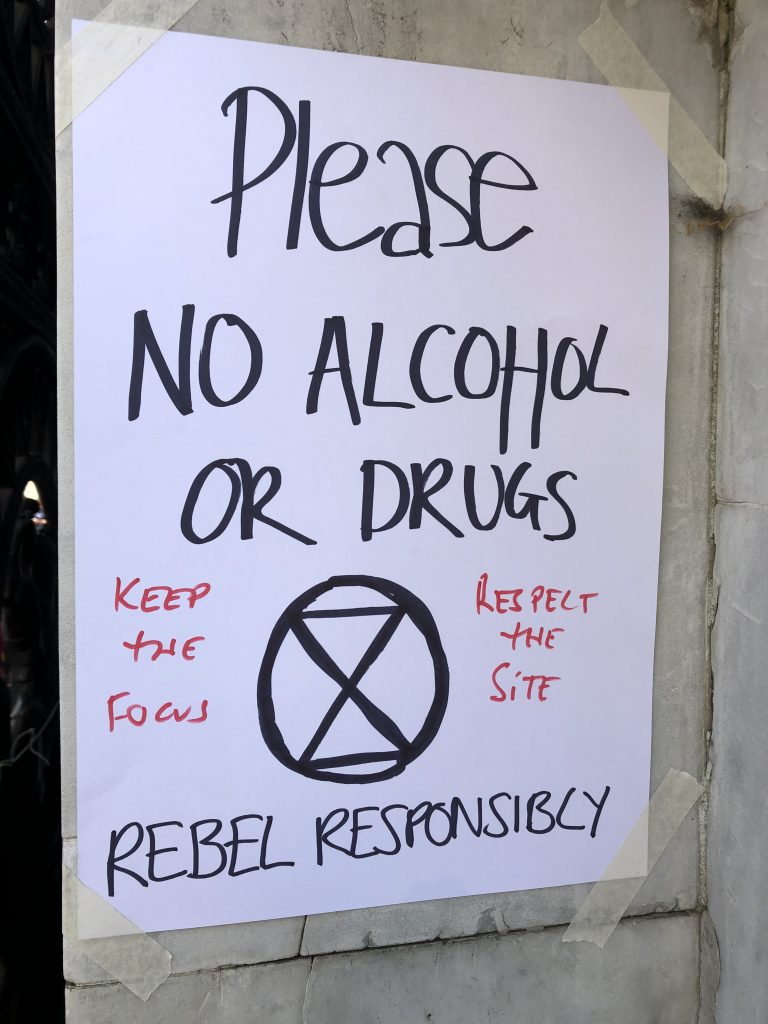 Please
NO ALCOHOL
OR DRUGS
KEEP
THE
FOCUS
RESPECT
THE
SITE
REBEL RESPONSIBLY